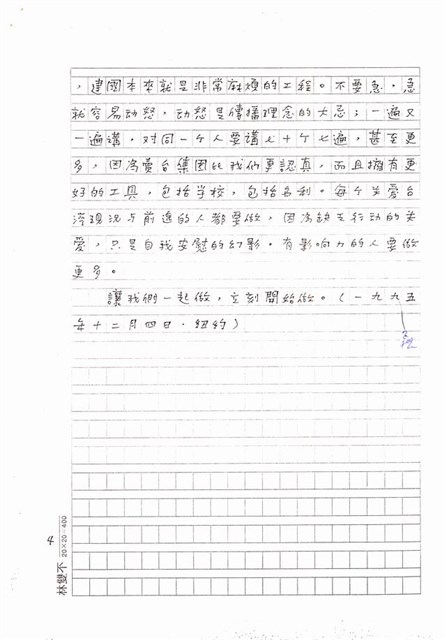 ，建國本來就是非常麻煩的工程。不要急。急
就容易动怒，动怒是傳播理念的大忌；一遍又
一遍講，对同一个人要講七十个七遍，甚至更
多，因為賣台集團比我們更認真，而且擁有更
好的工具，包括学校，包括名利。每个关爱台
湾現況与前途的人都要做，因為缺乏行动的关
爱，只是自我安慰的幻影。有影响力的人要做
更多。
讓我們一起做，立刻開始做。（一九九五
年十二月四日．紐約）
4
林雙不 20×20=400